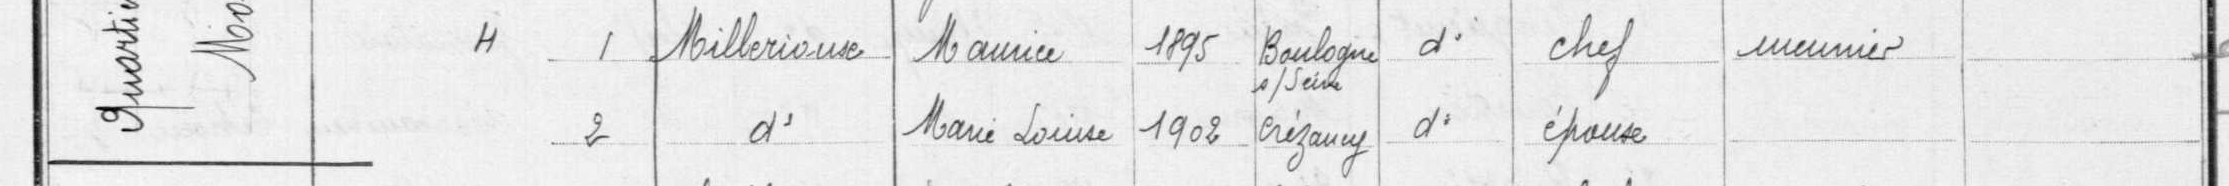 Quartier
4 1 Millerioux Maurice 1895 Boulogne s/Seine d° chef meunier
2 d° Marie Louise 1902 Crézancy d° épouse